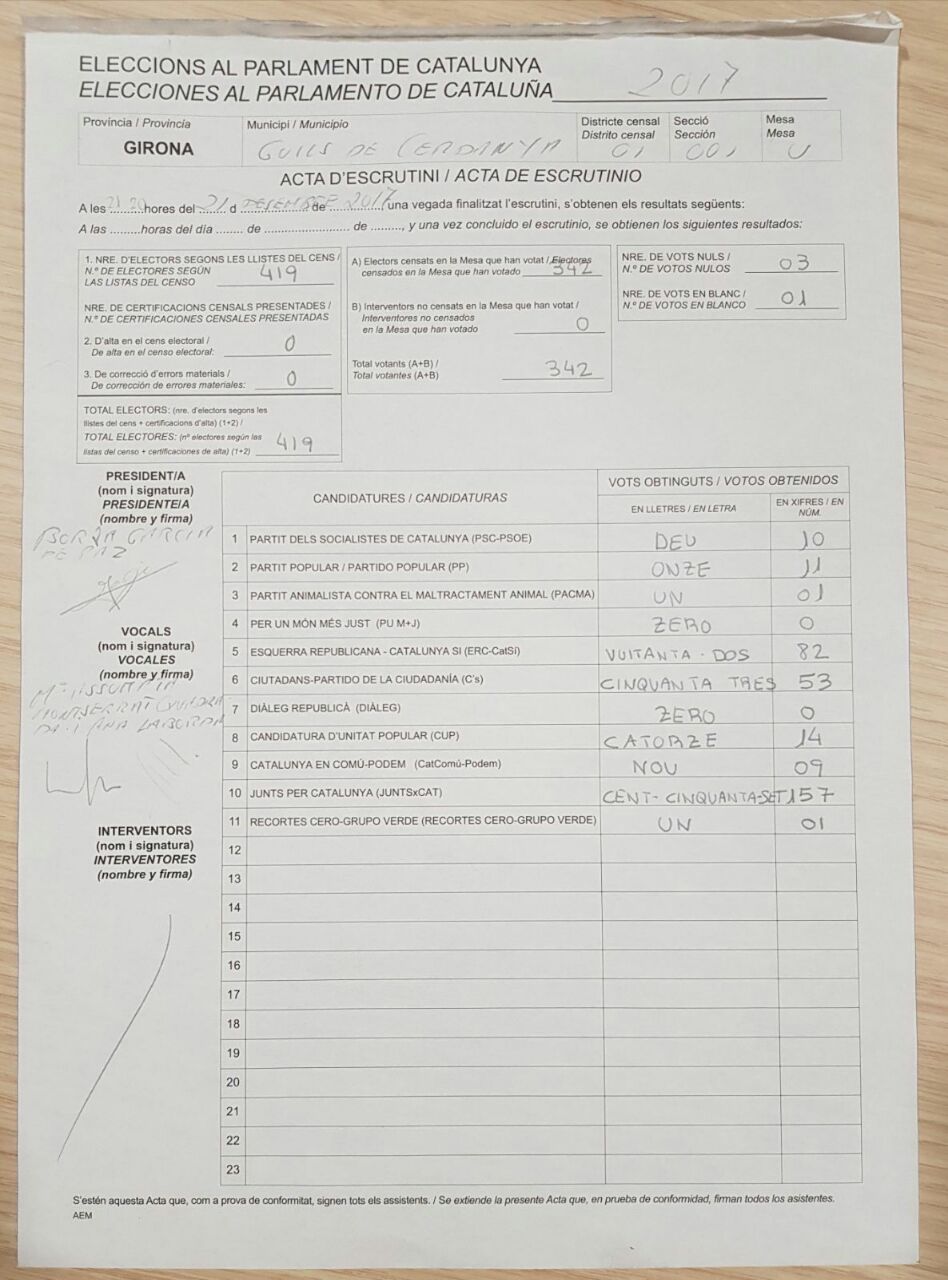 ELECCIONS AL PARLAMENT DE CATALUNYA
ELECCIONES AL PARLAMENTO DE CATALUÑA 2017
Provincia / Provincia
GIRONA
Municipi / Municipio
GUILS DE CERDANYA
Districte censal
Distrito censal
01
Secció
Sección
001
Mesa
Mesa
U
ACTA D'ESCRUTINI / ACTA DE ESCRUTINIO
A les 21:20 hores del 21 d DESEMBRE de 2017, una vegada finalitzat l'escrutini, s'obtenen els resultats següents:
A las .........horas del día ........ de ......................... de ........., y una vez concluido el escrutinio, se obtienen los siguientes resultados:
1. NRE. D'ELECTORS SEGONS LES LLISTES DEL CENS /
N.º DE ELECTORES SEGÚN
LAS LISTAS DEL CENSO 419
NRE. DE CERTIFICACIONS CENSALS PRESENTADES /
N.º DE CERTIFICACIONES CENSALES PRESENTADAS
2. D'alta en el cens electoral /
De alta en el censo electoral: 0
3. De correcció d'errors materials /
De corrección de errores materiales: 0
TOTAL ELECTORS: (nre. d'electors segons les
llistes del cens + certificacions d'alta) (1+2) /
TOTAL ELECTORES: (nº electores según las
listas del censo + certificaciones de alta) (1+2) 419
A) Electors censats en la Mesa que han votat / Electores
censados en la Mesa que han votado 342
B) Interventors no censats en la Mesa que han votat /
Interventores no censados
en la Mesa que han votado 0
Total votants (A+B) /
Total votantes (A+B) 342
NRE. DE VOTS NULS /
N.º DE VOTOS NULOS 03
NRE. DE VOTS EN BLANC /
N.º DE VOTOS EN BLANCO 01
PRESIDENT/A
(nom i signatura)
PRESIDENTE/A
(nombre y firma)
BORJA GARCIA
DE PAZ
VOCALS
(nom i signatura)
VOCALES
(nombre y firma)
Mª ASSUMPTA
MONTSERRAT
ANA LABORDA
INTERVENTORS
(nom i signatura)
INTERVENTORES
(nombre y firma)
CANDIDATURES / CANDIDATURAS
VOTS OBTINGUTS / VOTOS OBTENIDOS
EN LLETRES / EN LETRA
EN XIFRES / EN
NÚM.
1 PARTIT DELS SOCIALISTES DE CATALUNYA (PSC-PSOE) DEU 10
2 PARTIT POPULAR / PARTIDO POPULAR (PP) ONZE 11
3 PARTIT ANIMALISTA CONTRA EL MALTRACTAMENT ANIMAL (PACMA) UN 01
4 PER UN MÓN MÉS JUST (PU M+J) ZERO 0
5 ESQUERRA REPUBLICANA - CATALUNYA SI (ERC-CatSí) VUITANTA - DOS 82
6 CIUTADANS-PARTIDO DE LA CIUDADANÍA (C's) CINQUANTA TRES 53
7 DIÀLEG REPUBLICÀ (DIÀLEG) ZERO 0
8 CANDIDATURA D'UNITAT POPULAR (CUP) CATORZE 14
9 CATALUNYA EN COMÚ-PODEM (CatComú-Podem) NOU 09
10 JUNTS PER CATALUNYA (JUNTSxCAT) CENT-CINQUANTA-SET 157
11 RECORTES CERO-GRUPO VERDE (RECORTES CERO-GRUPO VERDE) UN 01
12
13
14
15
16
17
18
19
20
21
22
23
S'estén aquesta Acta que, com a prova de conformitat, signen tots els assistents. / Se extiende la presente Acta que, en prueba de conformidad, firman todos los asistentes.
AEM